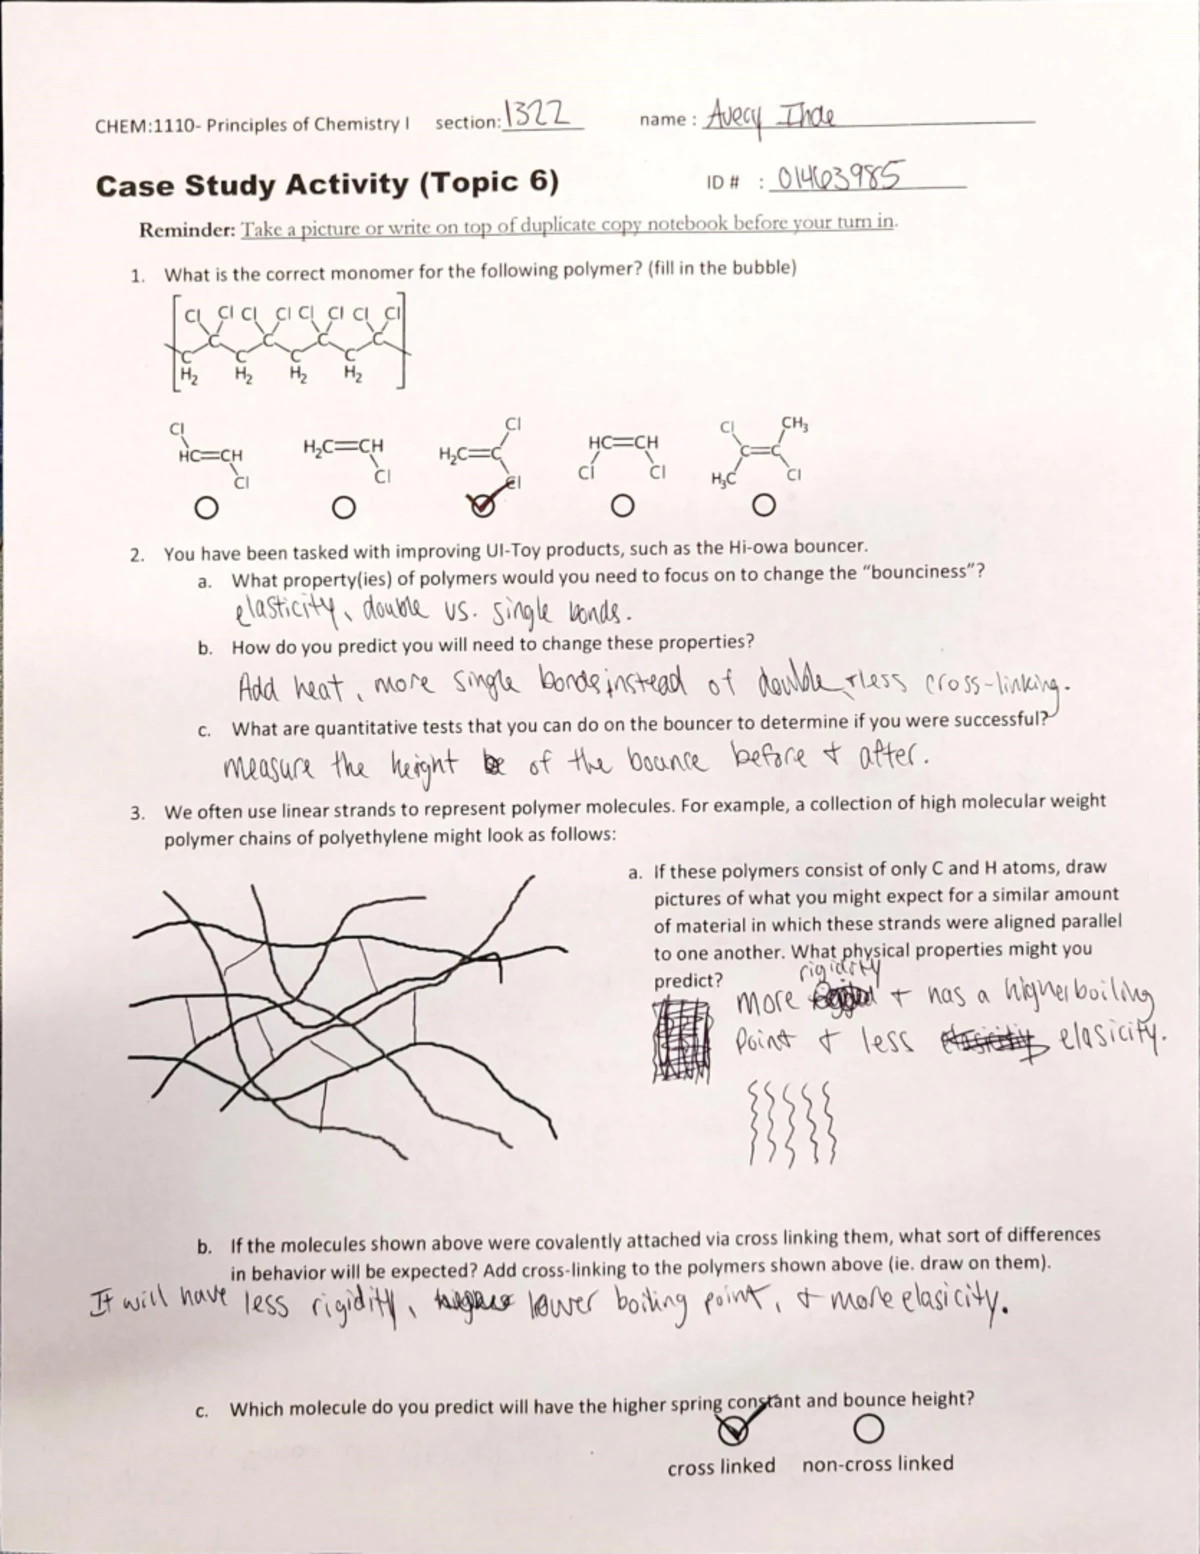 CHEM:1110- Principles of Chemistry I section: 1322 name : Avery Ihde
Case Study Activity (Topic 6) ID # : 01463985
Reminder: Take a picture or write on top of duplicate copy notebook before your turn in.
1. What is the correct monomer for the following polymer? (fill in the bubble)
Cl Cl Cl Cl Cl Cl Cl Cl
C C C C
C C C C
H2 H2 H2 H2
Cl Cl Cl CH3
HC=CH H2C=CH H2C=C HC=CH C=C
Cl Cl Cl Cl Cl H3C Cl
2. You have been tasked with improving UI-Toy products, such as the Hi-owa bouncer.
a. What property(ies) of polymers would you need to focus on to change the “bounciness”?
elasticity, double vs. single bonds.
b. How do you predict you will need to change these properties?
Add heat, more single bonds instead of double, + less cross-linking.
c. What are quantitative tests that you can do on the bouncer to determine if you were successful?
measure the height of the bounce before + after.
3. We often use linear strands to represent polymer molecules. For example, a collection of high molecular weight
polymer chains of polyethylene might look as follows:
a. If these polymers consist of only C and H atoms, draw
pictures of what you might expect for a similar amount
of material in which these strands were aligned parallel
to one another. What physical properties might you
predict?
more rigidity + has a higher boiling
point + less elasicity.
b. If the molecules shown above were covalently attached via cross linking them, what sort of differences
in behavior will be expected? Add cross-linking to the polymers shown above (ie. draw on them).
It will have less rigidity, lower boiling point, + more elasicity.
c. Which molecule do you predict will have the higher spring constant and bounce height?
cross linked non-cross linked